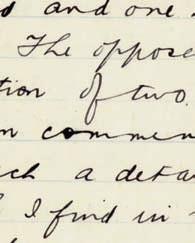 and one
The oppose
tion of two
commen
ch a deta
I find in